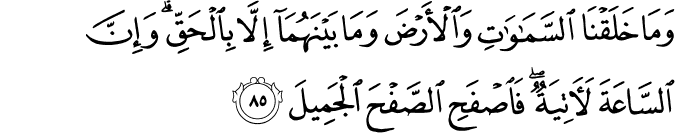 وَمَا خَلَقْنَا ٱلسَّمَٰوَٰتِ وَٱلْأَرْضَ وَمَا بَيْنَهُمَآ إِلَّا بِٱلْحَقِّ ۗ وَإِنَّ
ٱلسَّاعَةَ لَءَاتِيَةٌ ۖ فَٱصْفَحِ ٱلصَّفْحَ ٱلْجَمِيلَ ٨٥